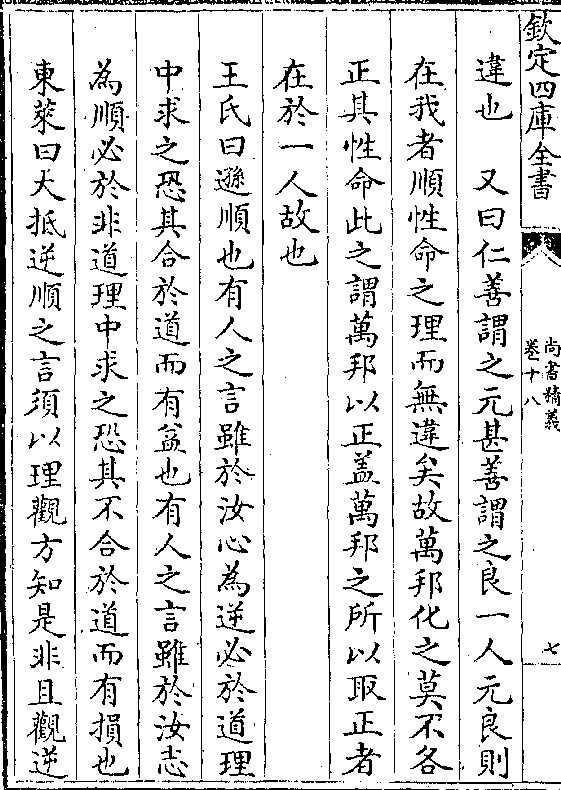 欽定四庫全書
尚書精義
卷十八
七
違也　又曰仁善謂之元甚善謂之良一人元良則
在我者順性命之理而無違矣故萬邦化之莫不各
正其性命此之謂萬邦以正盖萬邦之所以取正者
在於一人故也
王氏曰遜順也有人之言雖於汝心為逆必於道理
中求之恐其合於道而有益也有人之言雖於汝志
為順必於非道理中求之恐其不合於道而有損也
東萊曰大抵逆順之言須以理觀方知是非且觀逆